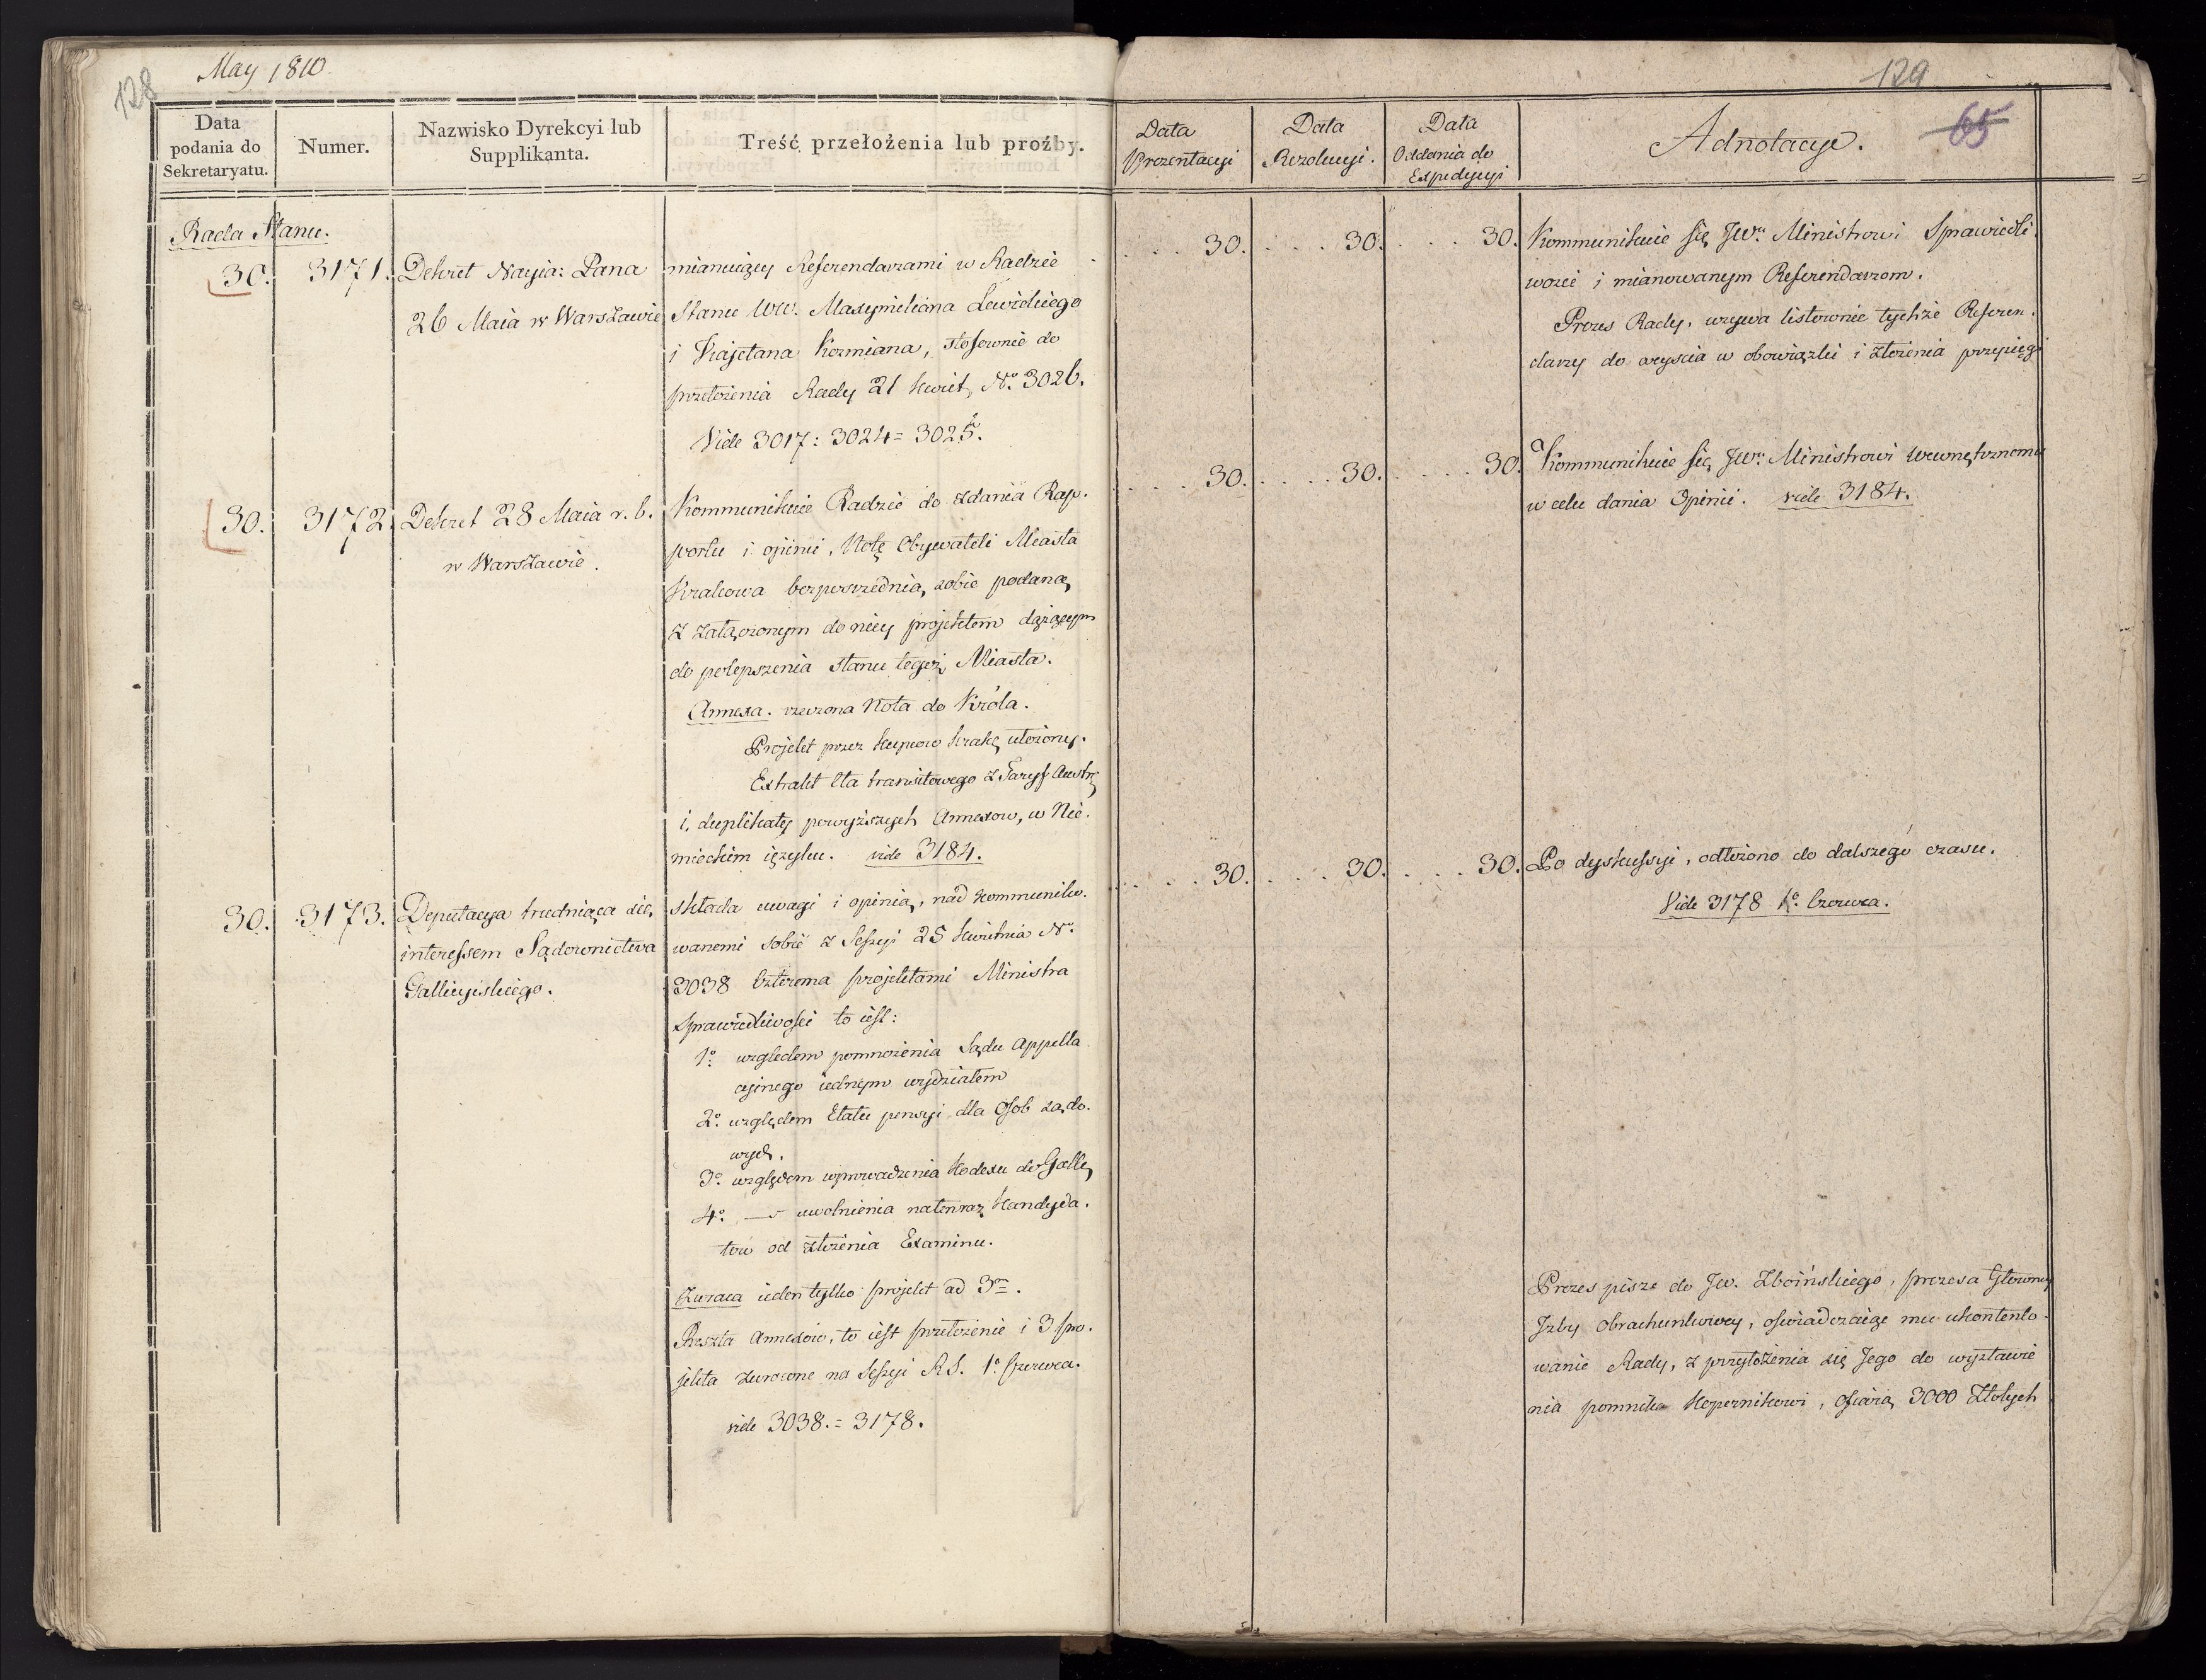 128
May 1810
Data podania do Sekretaryatu.
Numer.
Nazwisko Dyrekcyi lub Supplikanta.
Treść przełożenia lub proźby.
Rada Stanu.
30.
3171.
Dekret Nayia: Pana
26 Maia w Warszawie
mianuiący Referendarzami w Radzie
Stanu WW. Maxymiliana Lewickiego
i Kajetana Kozmiana, stosownie do
przełożenia Rady 21 Kwiet. No. 3026.
Vide 3017: 3024 = 3025.
30.
3172.
Dekret 28 Maia r. b.
w Warszawie.
Kommunikuie Radzie do zdania Rap.
portu i opinii, Notę Obywateli Miasta
Krakowa bezposrzednią sobie podaną,
z załączonym do niey projektem dążącym
do polepszenia stanu tegoż Miasta.
Annexa. rzeczona Nota do Króla.
Projekt przez Kupcow Krakę ułożony.
Extrakt Cła tranzitowego z Taryf Austr
i duplikaty powyższych Annexow, w Nie.
mieckim ięzyku. vide 3184.
30.
3173.
Deputacya trudniąca się
interessem Sądownictwa
Gallicyiskiego.
składa uwagi i opinią, nad kommuniko.
wanemi sobie z Sessyi 25 Kwietnia No.
3038 Czterema projektami Ministra
Sprawiedliwości to iest:
1o. względem pomnożenia Sądu Appella
cyinego iednym wydziałem
2o. względem Etatu pensyi dla Osob sądo.
wych.
3o. względem wprowadzenia Kodexu do Galli,
4o. — uwolnienia natenraz Kandyda.
tow od złożenia Examinu.
Zwraca ieden tylko projekt ad 3m.
Reszta Annexow, to iest przełożenie i 3 pro.
jekta zwrocone na Sessyi R S. 1o. Czerwca.
vide 3038. = 3178.
129
65
Data Prezentacyi
Data Rezolucyi.
Data Oddania do Expedycyi
Adnotacye.
. . . 30. . . . 30. . . . 30.
Kommunikuie się JW. Ministrowi Sprawiedli.
wości i mianowanym Referendarzom.
Prezes Rady, wzywa listownie tychże Referen.
darzy do weyścia w obowiązki i złożenia przysięgi
. . . 30. . . . 30. . . . 30.
Kommunikuie się JW. Ministrowi Wewnętrznemu
w celu dania Opinii. vide 3184.
. . . 30. . . . 30. . . . 30.
Po dyskussyi, odłożono do dalszego czasu.
Vide 3178 1o. Czerwca.
Prezes pisze do JW. Zboińskiego, prezesa Głowney
Izby Obrachunkowey, oświadczaiąc mu ukontento.
wanie Rady, z przyłożenia się Jego do wystawie
nia pomnika Kopernikowi, ofiarą 3000 Złotych